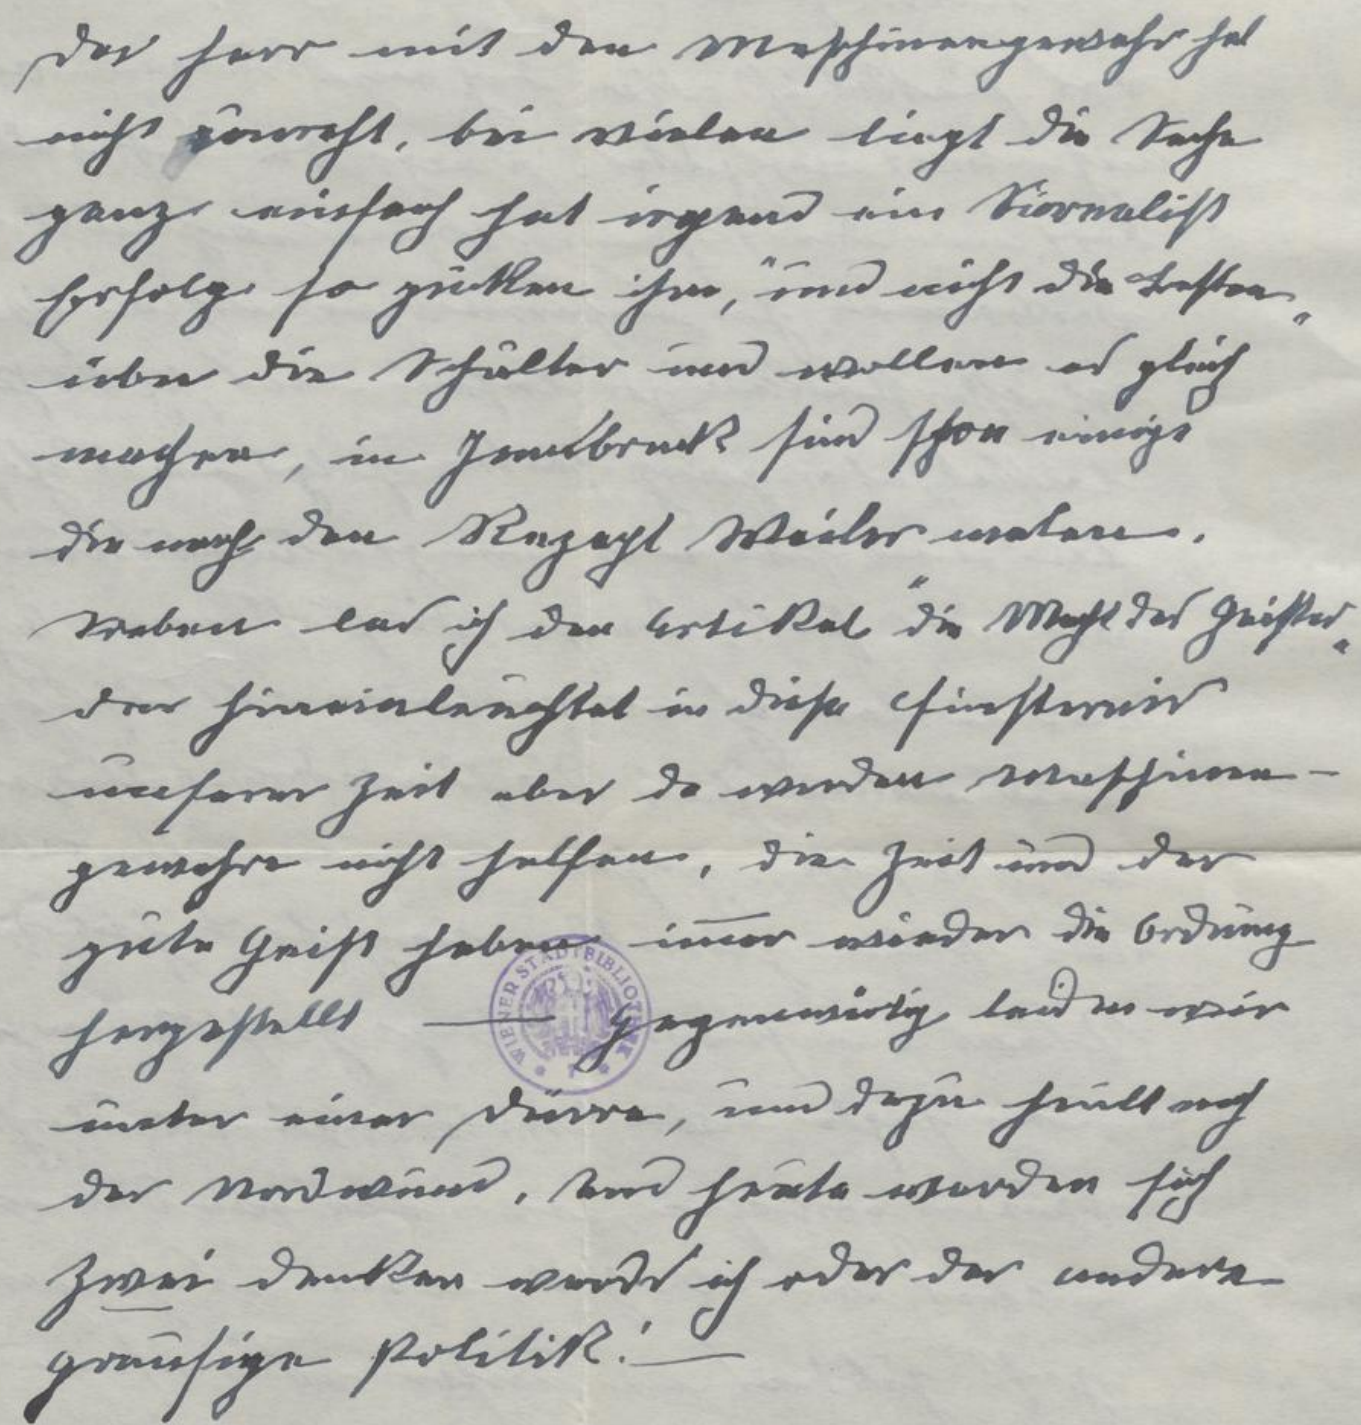 Der Herr mit den Maschinengewehr hat
nicht unrecht, bei vielen liegt die Sache
ganz einfach hat irgend ein Siornalist
Erfolg so gucken ihm, "und nicht die besten"
über die Schulter und wollen es gleich
machen, in Innsbruck sind schon einige
die nach den Rezept Weiler malen.
Soeben las ich den Artikel "die Macht des Geistes"
der hineinleuchtet in diese Finsternis
unserer Zeit aber da werden Maschinen-
gewehre nicht helfen, die Zeit und der
gute Geist haben immer wieder die Ordnung
hergestellt — Gegenwärtig leiden wir
unter einer Dürre, und dazu heult noch
der Nordwind, und heute werden sich
Zwei denken werds ich oder der andere
grausige Politik! —
WIENER STADTBIBLIOTHEK